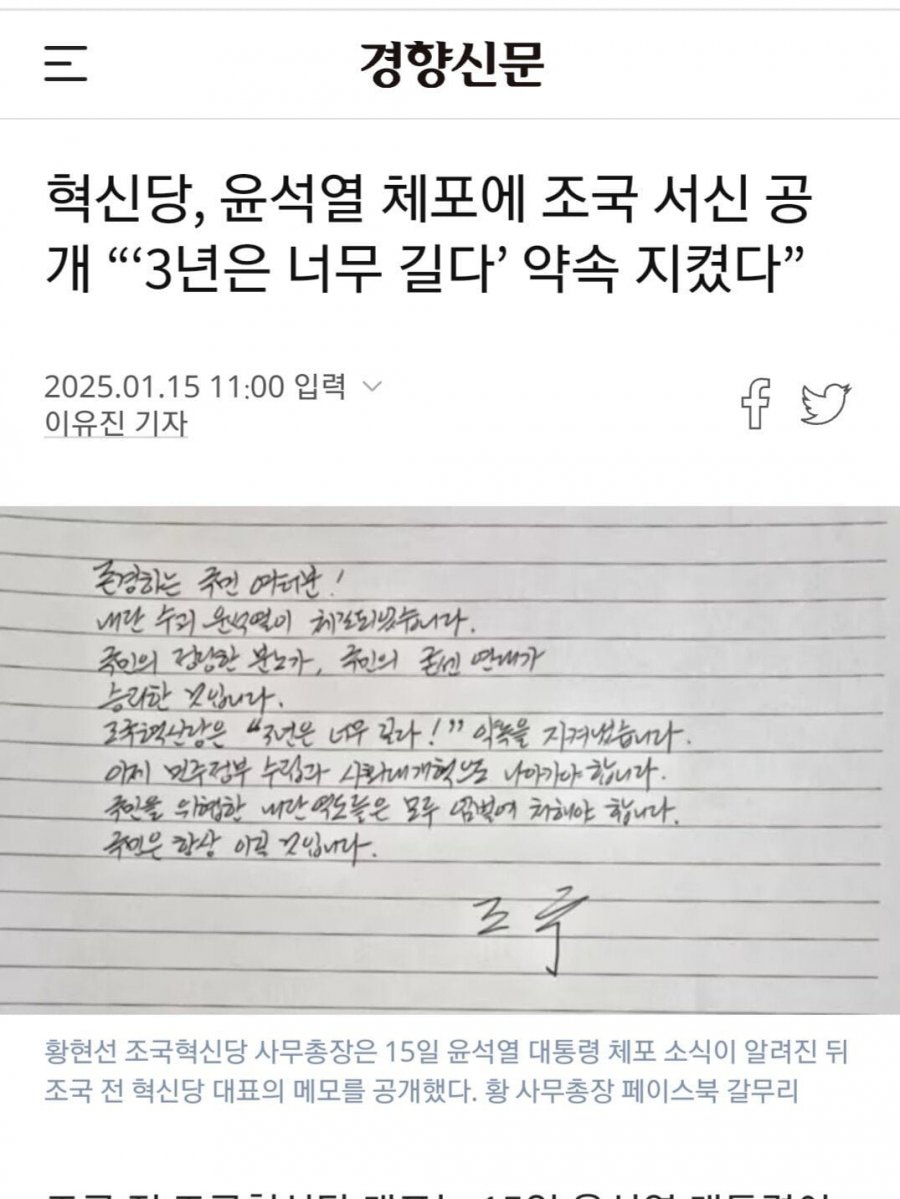 경향신문
혁신당, 윤석열 체포에 조국 서신 공
개 “‘3년은 너무 길다’ 약속 지켰다”
2025.01.15 11:00 입력
이유진 기자
존경하는 국민 여러분!
내란 수괴 윤석열이 체포되었습니다.
국민의 정당한 분노가, 국민의 굳센 연대가
승리한 것입니다.
조국혁신당은 “3년은 너무 길다!” 약속을 지켜냈습니다.
이제 민주정부 수립과 사회대개혁으로 나아가야 합니다.
국민을 위협한 내란 역도들은 모두 엄벌에 처해야 합니다.
국민은 항상 이길 것입니다.
조국
황현선 조국혁신당 사무총장은 15일 윤석열 대통령 체포 소식이 알려진 뒤
조국 전 혁신당 대표의 메모를 공개했다. 황 사무총장 페이스북 갈무리